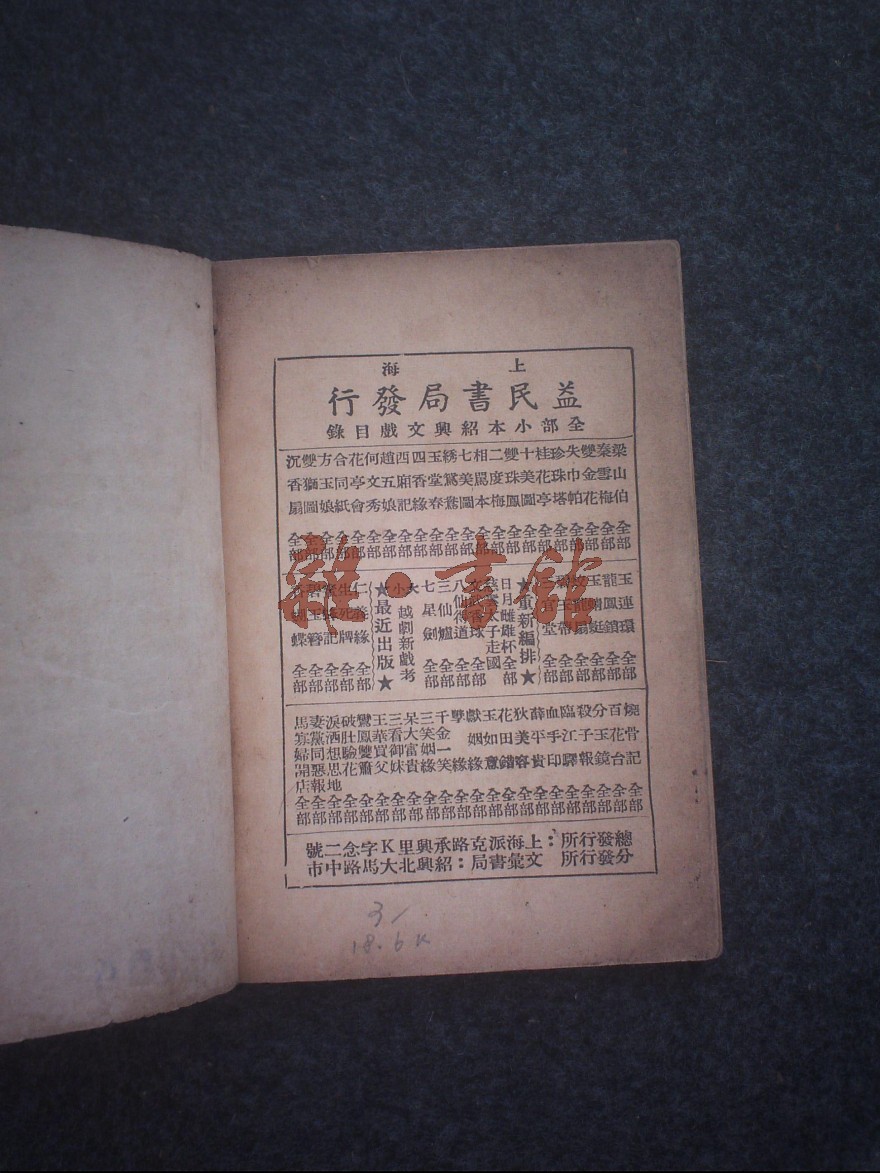 上海
益民書局發行
全部小本紹興文戲目錄
梁山伯 全部
秦雪梅 全部
雙金花 全部
失巾帕 全部
珍珠塔 全部
桂花亭 全部
十美圖 全部
雙珠鳳 全部
二度梅 全部
相罵本 全部
七美圖 全部
綉鴛鴦 全部
玉堂春 全部
四香緣 全部
西廂記 全部
趙五娘 全部
何文秀 全部
花亭會 全部
合同紙 全部
方玉娘 全部
雙獅圖 全部
沉香扇 全部
玉連環 全部
龍鳳鎖 全部
玉蜻蜓 全部
三官堂 全部
★重新編排★
日月雌雄杯 全部
太子走國
香球 全部
八仙得道 全部
三仙爐 全部
七星劍 全部
大小越劇新戲考
★最近出版★
仁義緣 全部
生死牌 全部
碧玉簪 全部
香蝴蝶 全部
燒骨記 全部
百花台 全部
分玉鏡 全部
殺子報 全部
臨江驛 全部
血手印 全部
薛平貴 全部
狄美容 全部
花田錯 全部
玉如意 全部
千金一笑 全部
三笑姻緣 全部
呆大富貴 全部
三看御妹 全部
王華買父 全部
鸞鳳雙簫 全部
破肚驗花 全部
淚洒想思 全部
妻黨同惡報 全部
馬寡婦開店 全部
總發行所：上海派克路承興里K字念二號
分發行所 文彙書局：紹興北大馬路中市
雜·書館
3/
18.6K